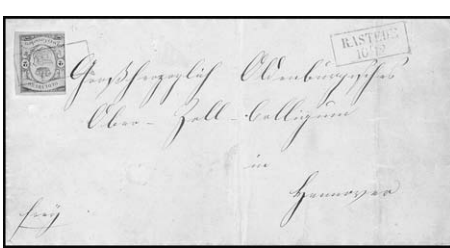 RASTEDE
Großherzoglich Oldenburgisches
Ober-Zoll-Collegium
in
Hannover
frei